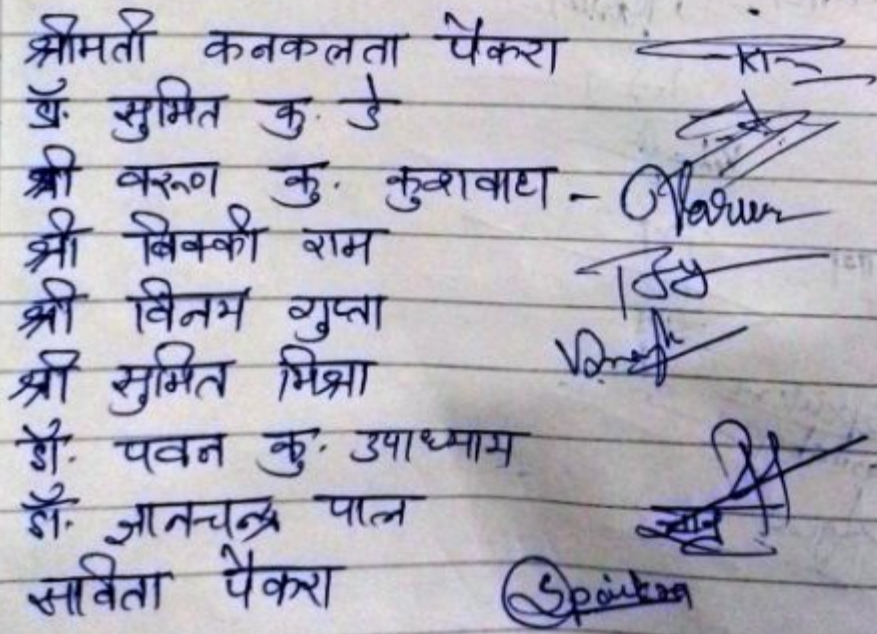 श्रीमती कनकलता पैकरा
डॉ. सुमित कु. डे
श्री वरूण कु. कुशवाहा - Varun
श्री विक्की राम
श्री विनय गुप्ता
श्री सुमित मिश्रा
डॉ. पवन कु. उपाध्याय
डॉ. ज्ञानचन्द्र पाल ज्ञान
सविता पैकरा Spaikra